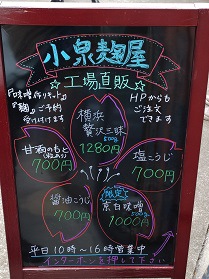 小泉麹屋
☆工場直販☆
『味噌作りキット』
『麹』ご予約
受け付けます
HPからも
ご注文
できます
横浜
贅沢三昧
500g
1280円
甘酒のもと
700円
塩こうじ
700円
醤油こうじ
700円
限定
京白味噌
500g
1000円
平日10時〜16時営業中
インターホンを押して下さい